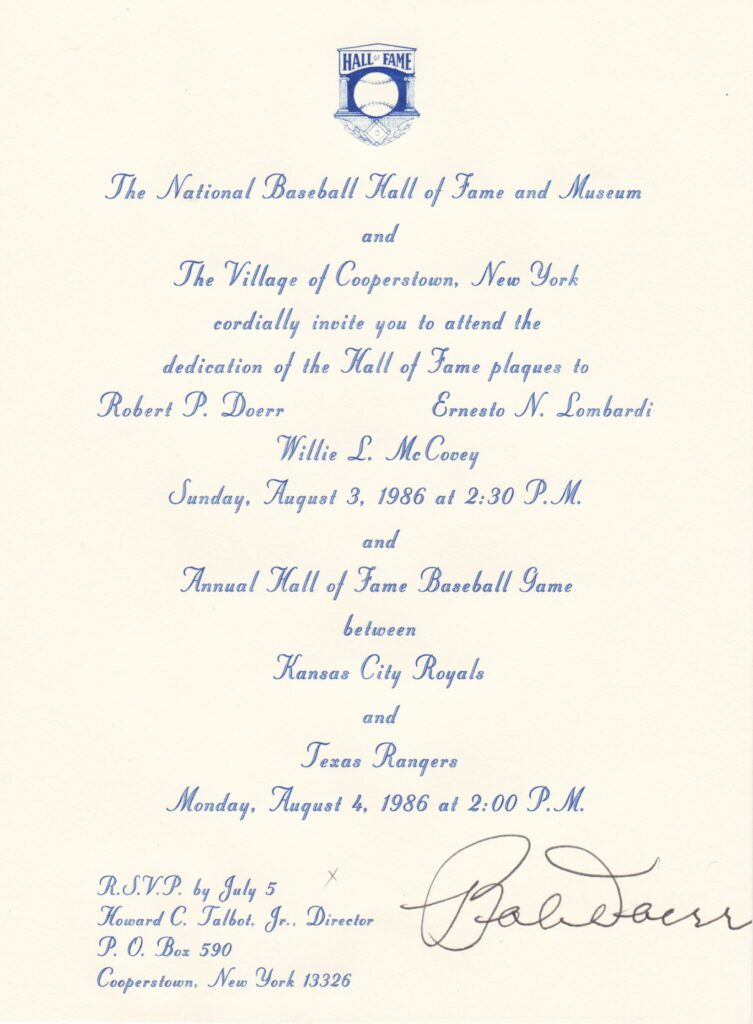 HALL of FAME
The National Baseball Hall of Fame and Museum
and
The Village of Cooperstown, New York
cordially invite you to attend the
dedication of the Hall of Fame plaques to
Robert P. Doerr Ernesto N. Lombardi
Willie L. McCovey
Sunday, August 3, 1986 at 2:30 P.M.
and
Annual Hall of Fame Baseball Game
between
Kansas City Royals
and
Texas Rangers
Monday, August 4, 1986 at 2:00 P.M.
R.S.V.P. by July 5
Howard C. Talbot, Jr., Director
P. O. Box 590
Cooperstown, New York 13326
x
Bob Doerr